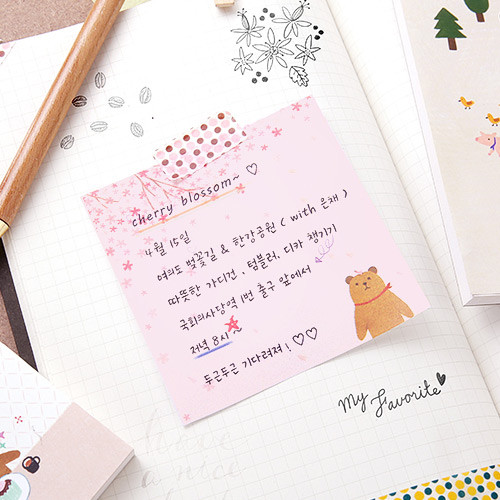 cherry blossom~ ♡
4월 15일
여의도 벚꽃길 & 한강공원 ( with 은채 )
따뜻한 가디건, 텀블러, 디카 챙기기
국회의사당역 1번 출구 앞에서
저녁 8시~
두근두근 기다려져! ♡♡
My Favorite
have
a nice